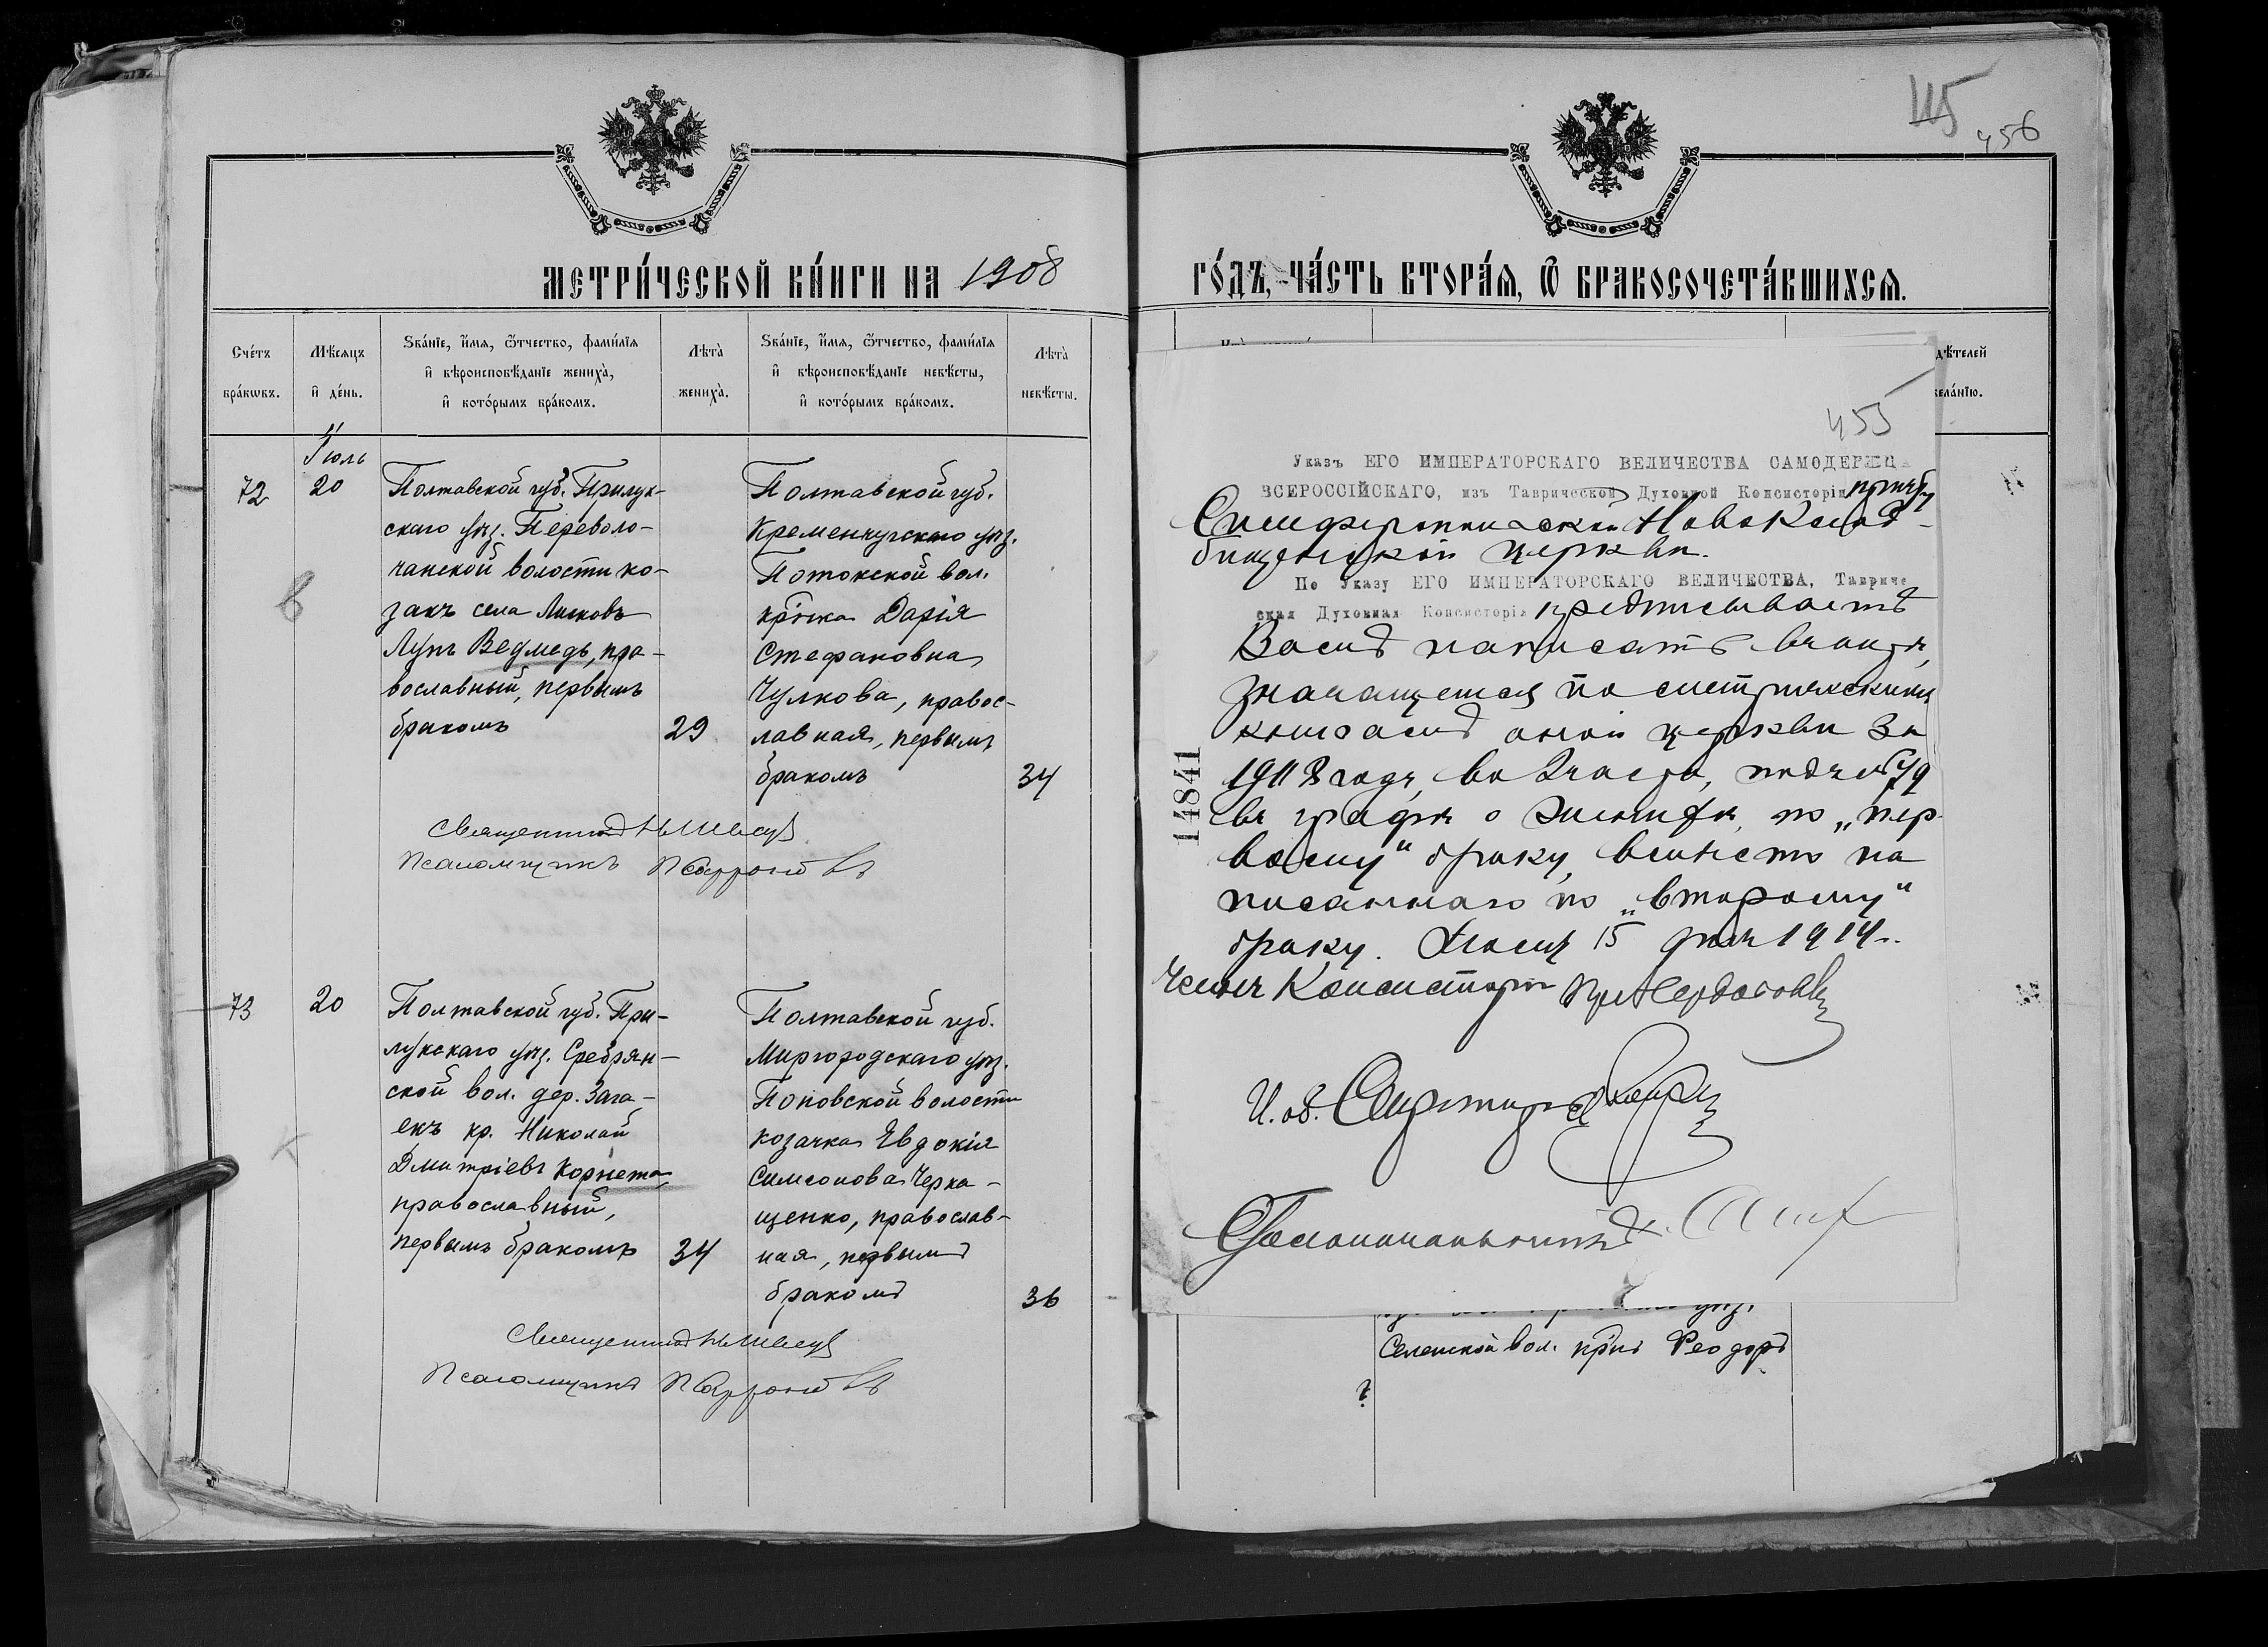 МЕТРИ́ЧЕСКОЙ КНИ́ГИ НА 1908
Сче́тъ
бра́кωвъ.
Мѣ́сяцъ
и҆ де́нь.
Ѕва́нїе, и҆́мѧ, ѻ҆́тчество, фами́лїѧ
и҆ вѣроисповѣ́данїе жениха̀,
и҆ кото́рымъ бра́комъ.
Лѣта̀
жениха̀.
Ѕва́нїе, и҆́мѧ, ѻ҆́тчество, фами́лїѧ
и҆ вѣроисповѣ́данїе невѣ́сты,
и҆ кото́рымъ бра́комъ.
Лѣта̀
невѣ́сты.
Іюль
72
20
Полтавской губ. Прилук-
скаго уѣз. Переволо-
чанской волости ко-
закъ села
Лупъ Ведмедь, пра-
вославный, первымъ
бракомъ
29
Полтавской губ.
Кременчугскаго уѣз.
Потокской вол.
кр-нка Дарія
Стефановна
Чулкова, правос-
лавная, первымъ
бракомъ
34
в
Священникъ Н.
Псаломщикъ
73
20
Полтавской губ. При-
лукскаго уѣз. Сребрян-
ской вол. дер. Зага-
екъ кр. Николай
Дмитріевъ Корнета,
православный,
первымъ бракомъ
34
Полтавской губ.
Миргородскаго уѣз.
Поповской волости
козачка Евдокія
Симеонова Черка-
щенко, православ-
ная, первымъ
бракомъ
36
к
Священникъ Н.
Псаломщикъ
115
456
ГО́ДЪ, ЧА́СТЬ ВТОРА́Ѧ, Ѽ БРАКОСОЧЕТА́ВШИХСѦ.
дѣтелей
желанїю.
455
Указъ ЕГО ИМПЕРАТОРСКАГО ВЕЛИЧЕСТВА САМОДЕРЖЦА
ВСЕРОССІЙСКАГО, изъ Таврической Духовной Консисторіи причту
Симферопольской Новоклад-
бищенской церкви.
По Указу ЕГО ИМПЕРАТОРСКАГО ВЕЛИЧЕСТВА, Тавриче
ская Духовная Консисторія предписываетъ
Вамъ написать въ актѣ,
значащемся по метрическимъ
книгамъ оной церкви за
1908 годъ, во 2 части, подъ № 79
въ графѣ о женихѣ, по „пер-
вому“ браку, вмѣсто на
писаннаго по „второму“
браку. 15 дня 1914 г.
Членъ Консисторіи
И. об. Секретаря
Столоначальникъ
14841
Селенской вол. кр-нъ Феодоръ